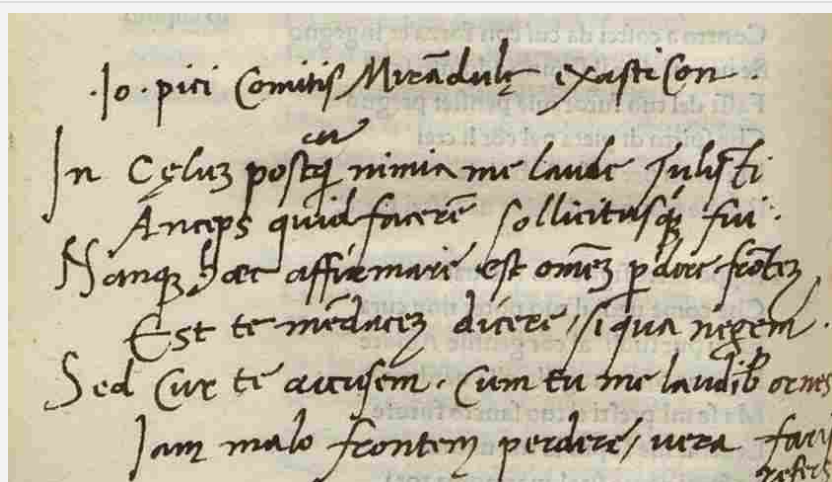 .Io. pici Comitis Mirādulę exasticon.
cu
In Cęluʒ postq̄ nimia me laude tulisti
Anceps quid facerē sollicitusq; fui.
Nanq; haec affirmare est omēʒ ꝑdere frōteʒ
Est te mēdaceʒ dicere / si qua negem.
Sed Cur te accusem. Cum tu me laudib ornes
Iam malo frontem perdere / vera